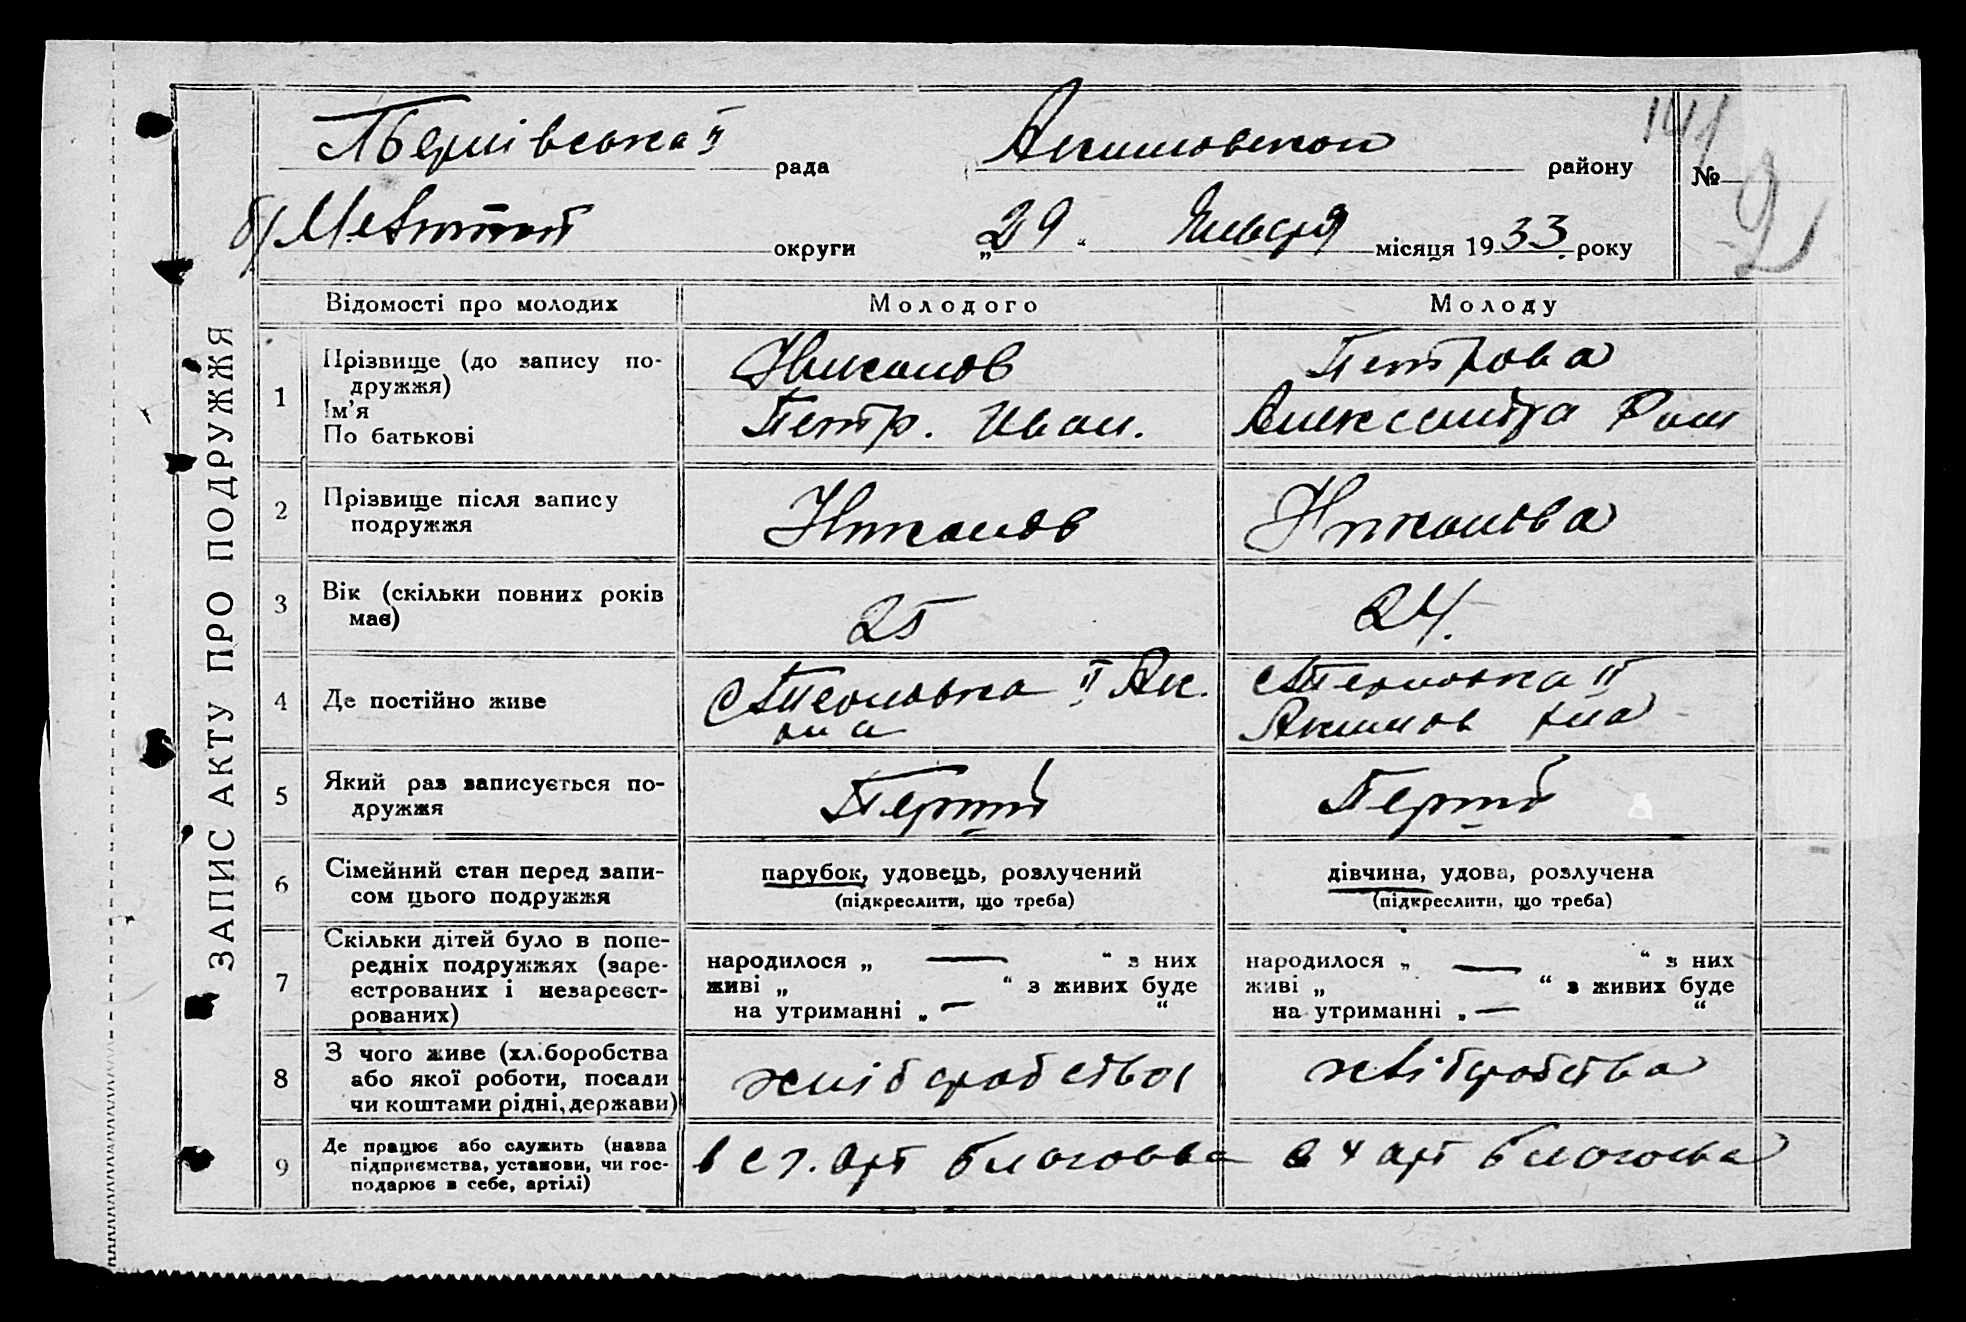 ЗАПИС АКТУ ПРО ПОДРУЖЖЯ
рада Акимовского району №
б/ Меліт округи „29“ Января місяця 1933 року
141
2
Відомості про молодих Молодого Молоду
1 Прізвище (до запису по-
дружжя)
Ім'я
По батькові
Никонов Петрова
Петр. Иван. Александра Ром
2 Прізвище після запису
подружжя
Никонов Никонова
3 Вік (скільки повних років
має)
25 24.
4 Де постійно живе
II Ак. II
рна Акимов рна
5 Який раз записується по-
дружжя
Перший Перший
6 Сімейний стан перед запи-
сом цього подружжя
парубок, удовець, розлучений дівчина, удова, розлучена
(підкреслити, що треба) (підкреслити, що треба)
7 Скільки дітей було в попе-
редніх подружжях (заре-
єстрованих і незареєст-
рованих)
народилося „ — “ з них народилося „ — “ з них
живі „ “ з живих буде живі „ “ з живих буде
на утриманні „ — “ на утриманні „ — “
8 З чого живе (хліборобства
або якої роботи, посади
чи коштами рідні, держави)
хліборобства хліборобства
9 Де працює або служить (назва
підприємства, установи, чи гос-
подарює в себе, артілі)
в арт Благоева в арт Благоева